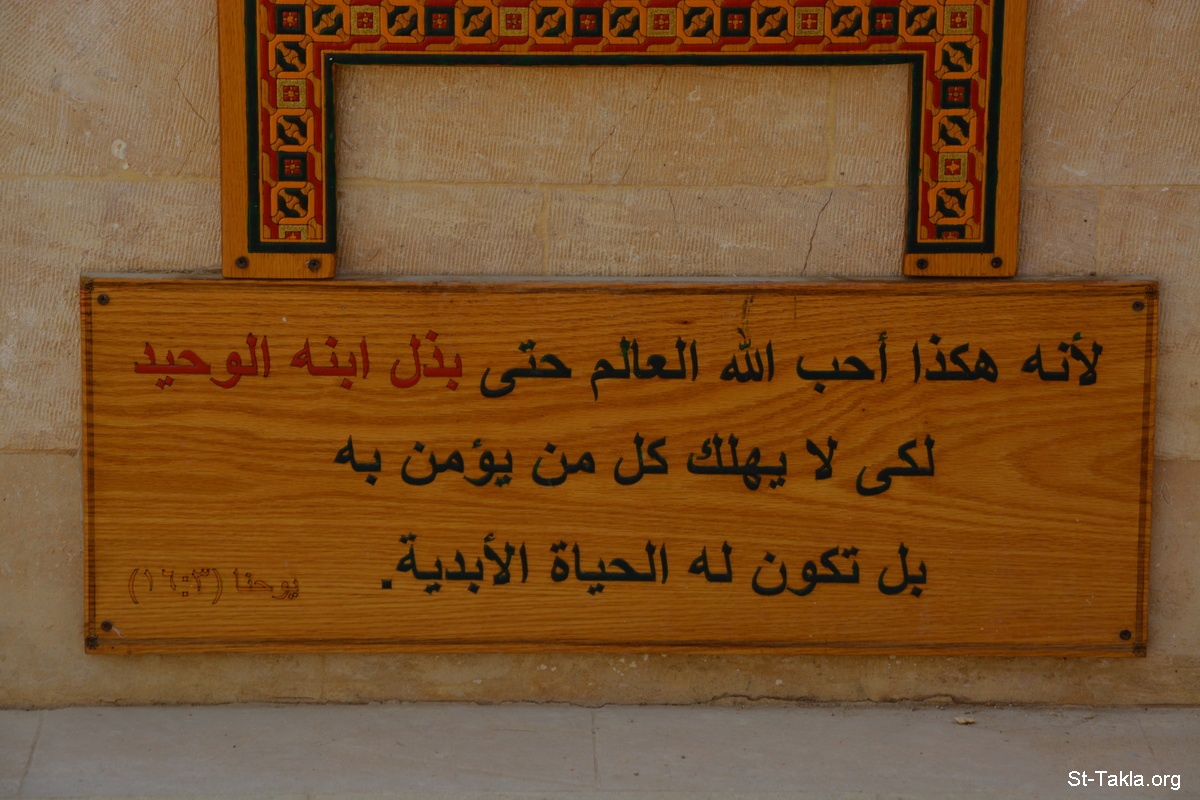 لأنه هكذا أحب الله العالم حتى بذل ابنه الوحيد
لكى لا يهلك كل من يؤمن به
بل تكون له الحياة الأبدية.
يوحنا (١٦:٣)
St-Takla.org